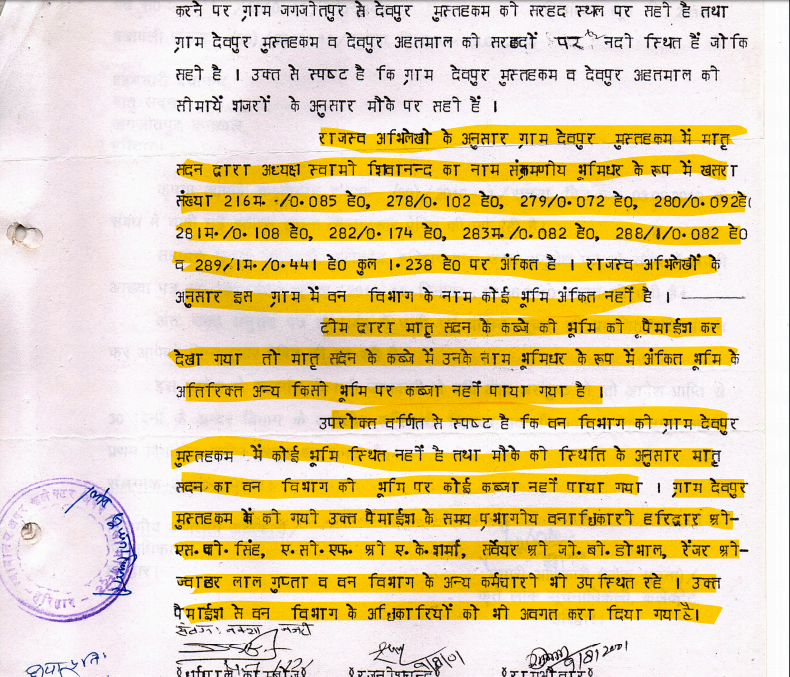 करने पर ग्राम जगजोतपुर से देवपुर मुस्तहकम की सरहद स्थल पर सही है तथा
ग्राम देवपुर मुस्तहकम व देवपुर अहतमाल की सरहदों पर नदी स्थित है जो कि
सही है । उक्त से स्पष्ट है कि ग्राम देवपुर मुस्तहकम व देवपुर अहतमाल की
सीमायें शजरों के अनुसार मौके पर सही हैं ।
राजस्व अभिलेखों के अनुसार ग्राम देवपुर मुस्तहकम में मातृ
सदन द्वारा अध्यक्ष स्वामी शिवानन्द का नाम संक्रमणीय भूमिधर के रूप में खसरा
संख्या 216म. /0.085 है0, 278/0.102 है0, 279/0.072 है0, 280/0.092है0
281म./0.108 है0, 282/0.174 है0, 283म./0.082 है0, 288/1/0.082 है0
व 289/1म./0.441 है0 कुल 1.238 है0 पर अंकित है । राजस्व अभिलेखों के
अनुसार इस ग्राम में वन विभाग के नाम कोई भूमि अंकित नहीं है ।
टीम द्वारा मातृ सदन के कब्जे की भूमि की पैमाईश कर
देखा गया तो मातृ सदन के कब्जे में उनके नाम भूमिधर के रूप में अंकित भूमि के
अतिरिक्त अन्य किसी भूमि पर कब्जा नहीं पाया गया है ।
उपरोक्त वर्णित से स्पष्ट है कि वन विभाग की ग्राम देवपुर
मुस्तहकम में कोई भूमि स्थित नहीं है तथा मौके की स्थिति के अनुसार मातृ
सदन का वन विभाग की भूमि पर कोई कब्जा नहीं पाया गया । ग्राम देवपुर
मुस्तहकम में की गयी उक्त पैमाईश के समय प्रभागीय वनाधिकारी हरिद्वार श्री-
एस.पी. सिंह, ए.सी.एफ. श्री ए.के.शर्मा, सर्वेयर श्री जी.बी.डोभाल, रेंजर श्री-
ज्वाहर लाल गुप्ता व वन विभाग के अन्य कर्मचारी भी उपस्थित रहे । उक्त
पैमाईश से वन विभाग के अधिकारियों को भी अवगत करा दिया गया है।
संलग्न: नक्शा नजरी
9/8/01
9/8/2001
हरिद्वार